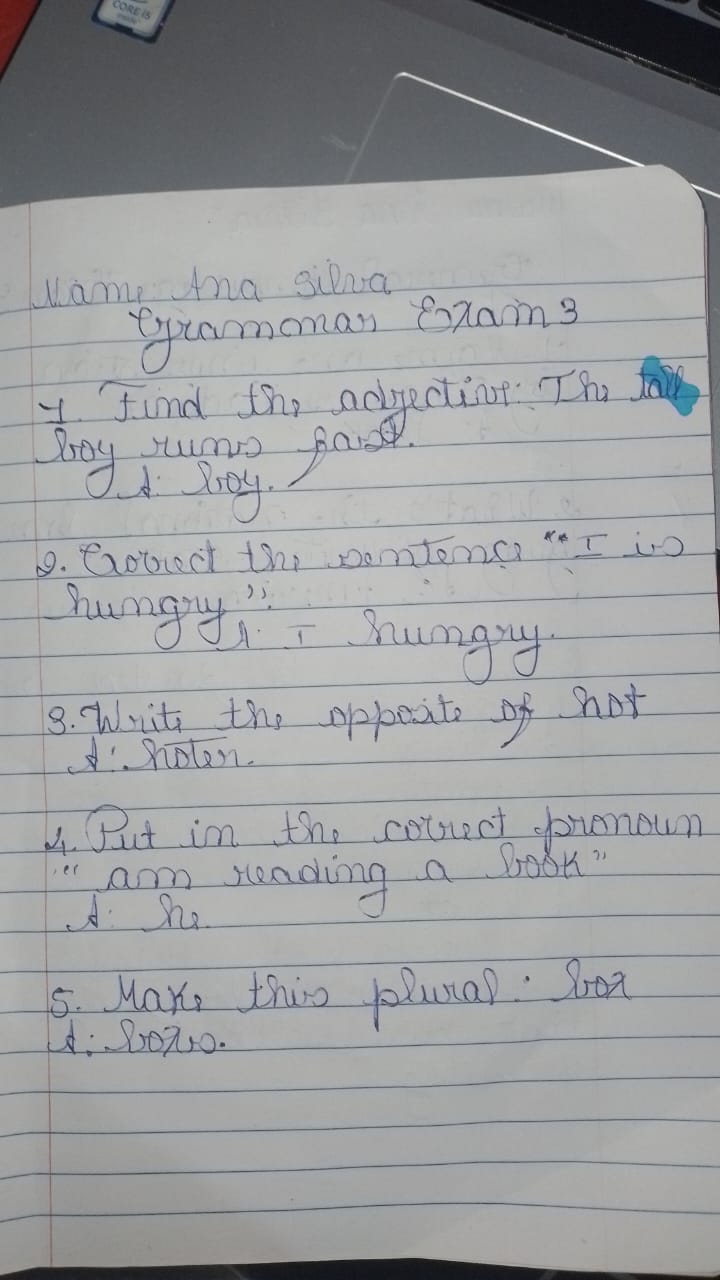 CORE i5
inside
Name Ana Silva
Grammar Exam 3
1. Find the adjective: The tall
boy runs fast.
A: boy.
2. Correct the sentence "I is
hungry".
A: I hungry.
3. Write the opposite of hot
A: hoter.
4. Put in the correct pronoun
" am reading a book"
A: he
5. Make this plural: box
A: boxs.